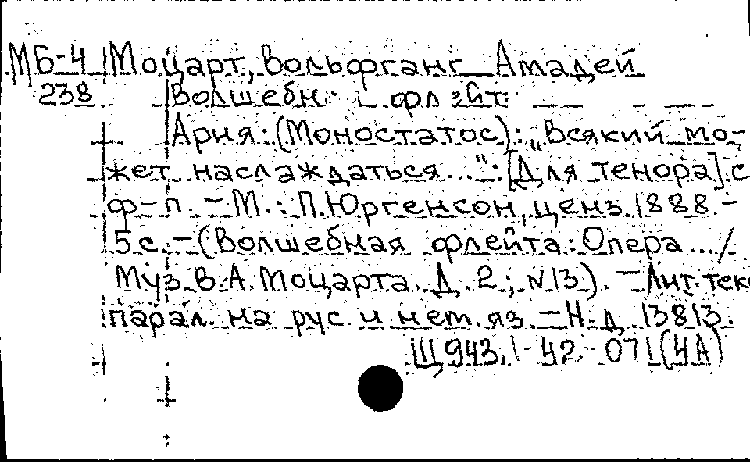 МБ-4 Моцарт, Вольфганг Амадей
238 Волшебн. флейт.
Ария: (Моностатос): „Всякий мо-
жет наслаждаться...": [Для тенора] с
ф-п. - М.: П. Юргенсон, ценз. 1888. -
5 с. - (Волшебная флейта: Опера .../
Муз. В.А. Моцарта. Д. 2; N13). - Лит. текс
парал. на рус. и нем. яз. - Н.д. 13813.
Щ943.1-42-071(4А)